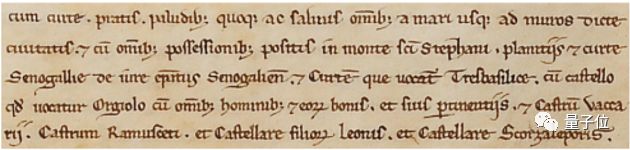 cum curte. pratis. piludib; quoq; ac salinis omib; a mari usq; ad muros dicte
ciuitatis. ⁊ cū omib; possessionib; positis in monte sc̄i Stephani. planitijs ⁊ curte
Senogallie de iure Senogalien̄. ⁊ Curtē que uocat̄ Tresbasilice. cū castello
qd̄ uocatur Orgiolo cū omib; hominib; ⁊ eoꝝ bonis. et suis ꝑtinentijs. ⁊ Castrū Vacca
rij. Castrum Ramusceti. et Castellare filioꝝ Leonis. et Castellare Scorzaleporis.
量子位